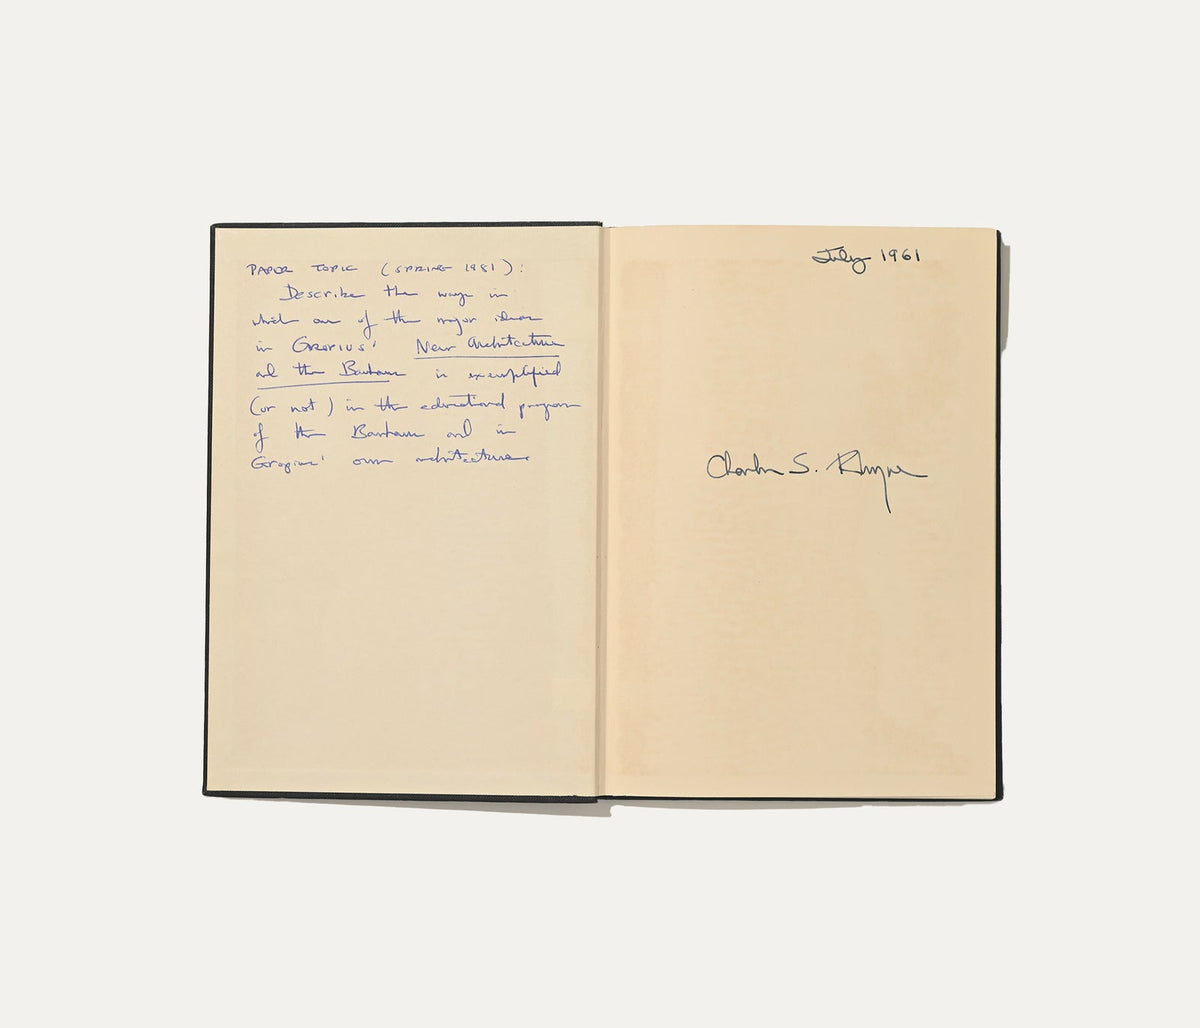 PAPER TOPIC (SPRING 1981):
Describe the ways in
which one of the major ideas
in GROPIUS' New Architecture
and the Bauhaus is exemplified
(or not) in the educational program
of the Bauhaus and in
Gropius' own architecture.
July 1961
Charles S. Rhyne